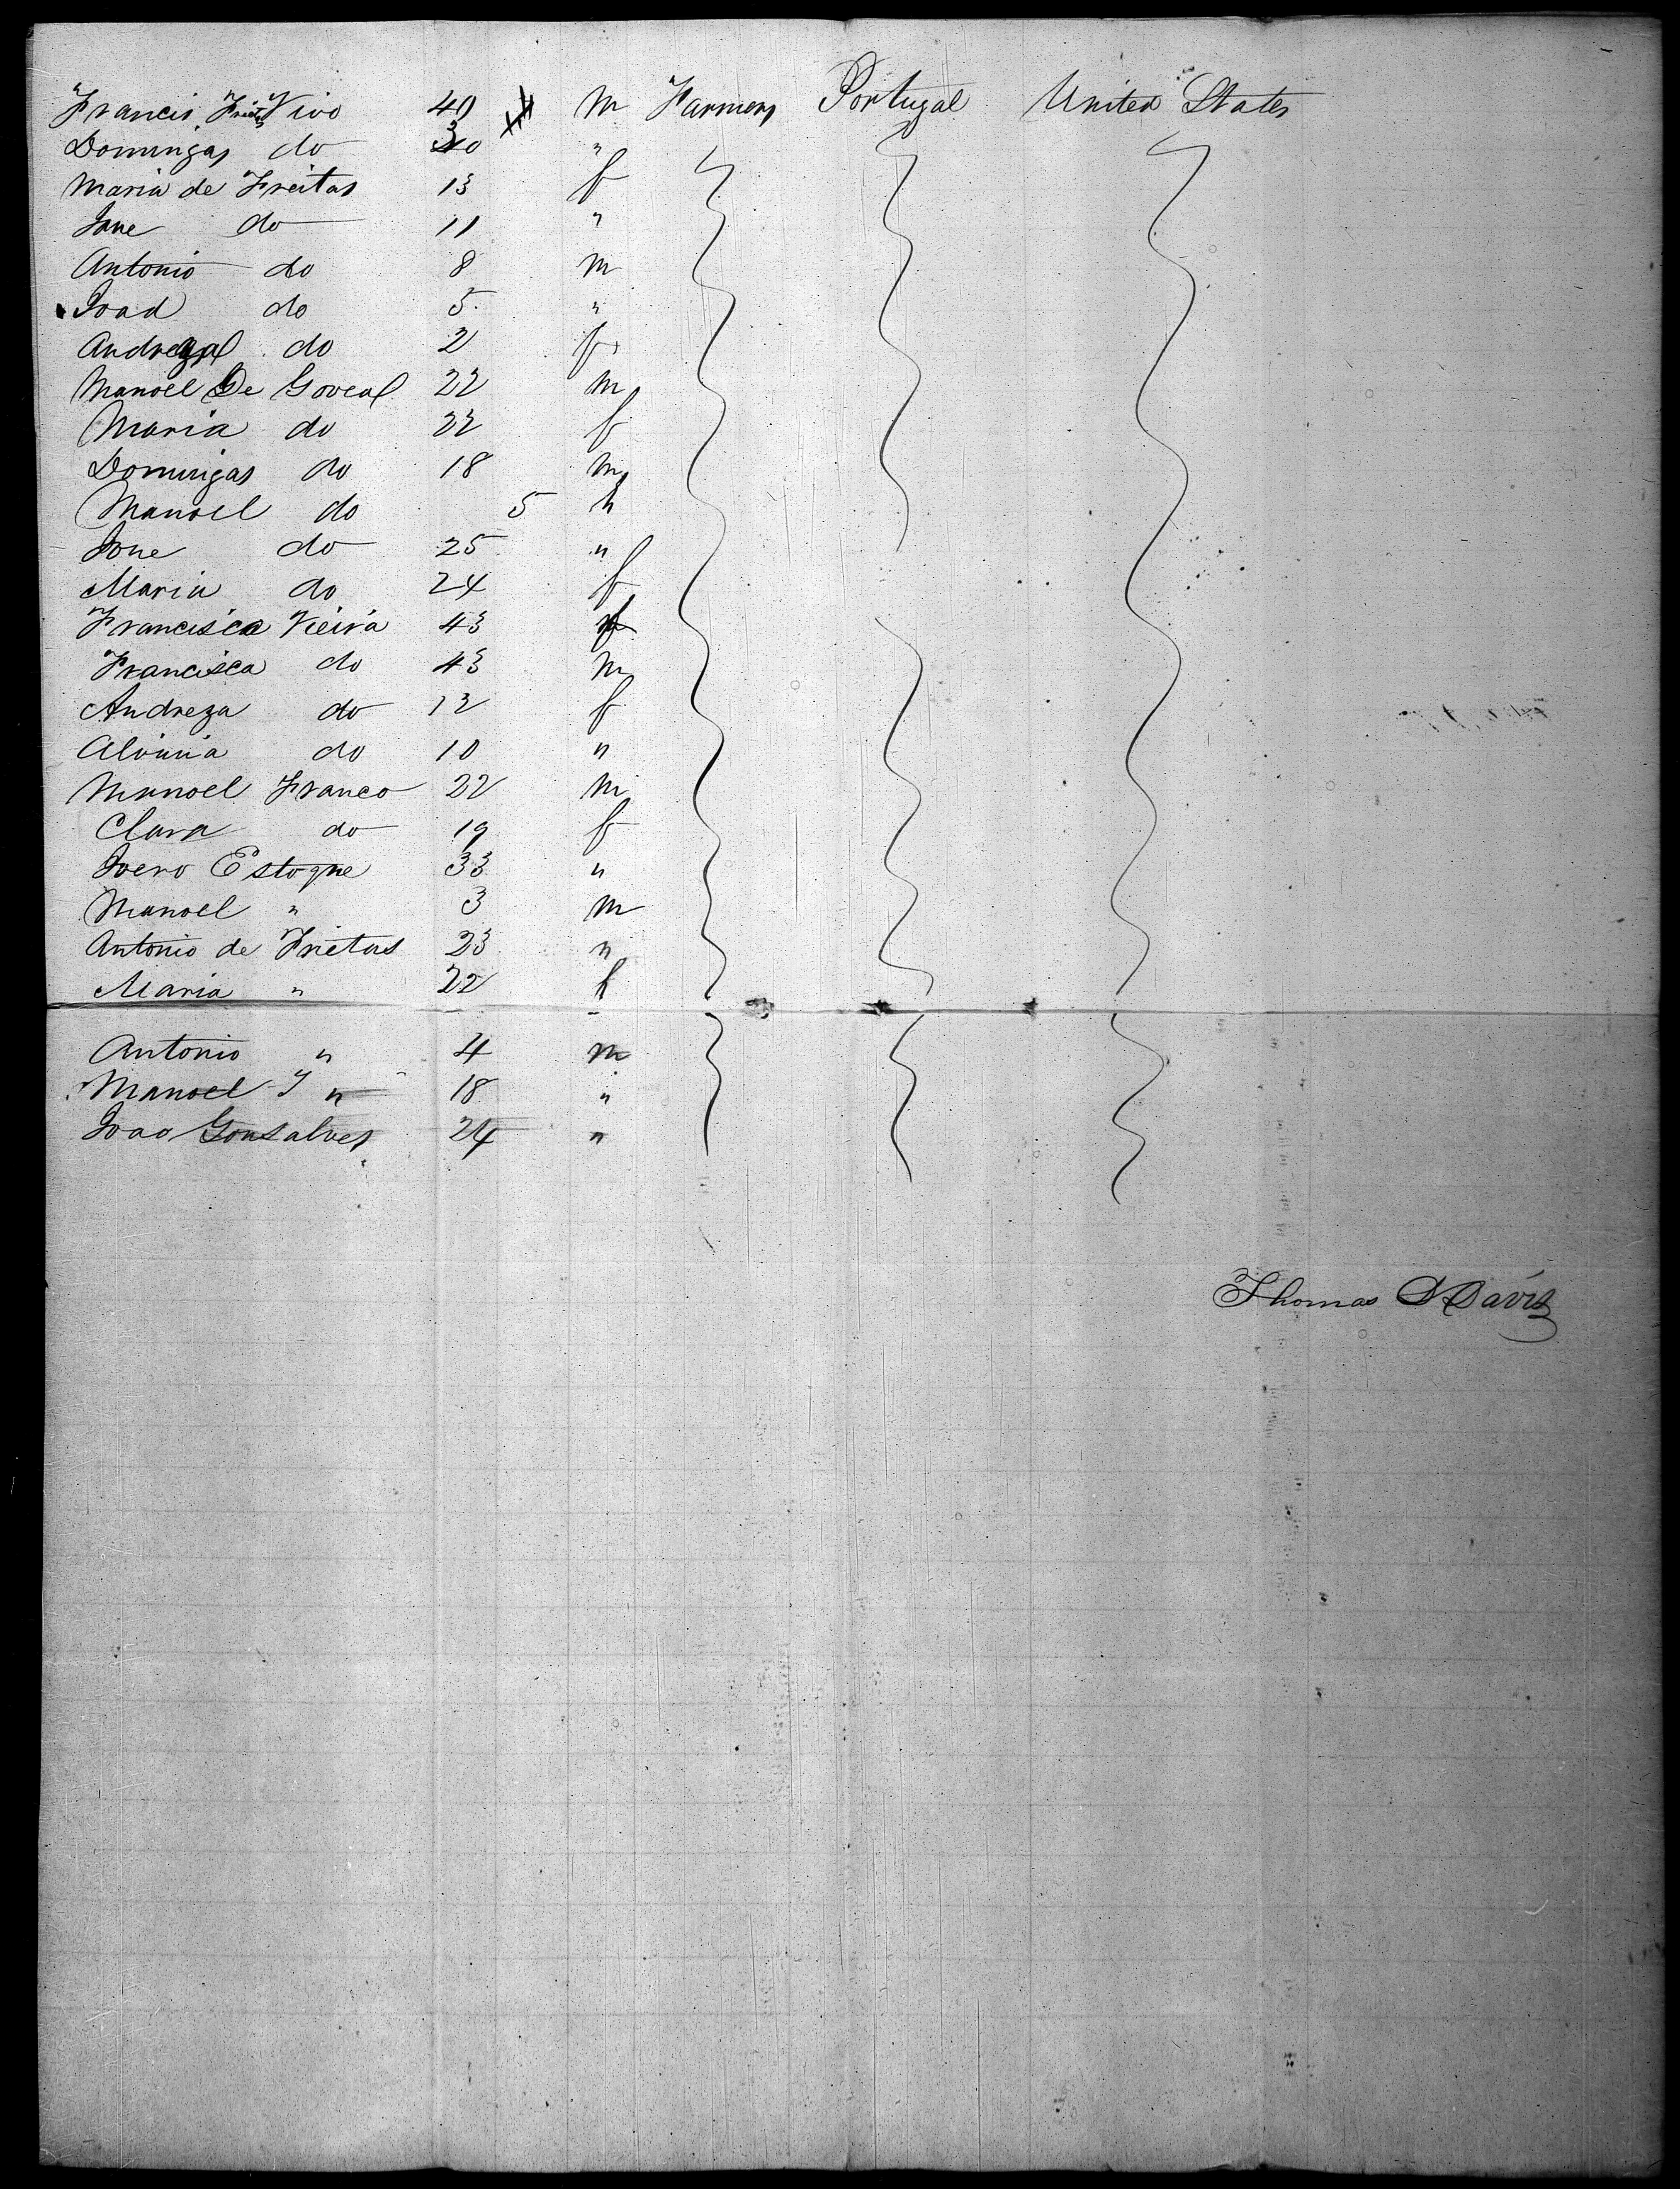 Francis Frietas Vivo 40 m Farmers Portugal United States
Domingas do 30 "
Maria de Freitas 13 f
Jone do 11 "
Antonio do 8 m
Joad do 5 "
Andreza do 2 f
Manoel De Goveal 22 m
Maria do 22 f
Domingas do 18 m
Manoel do 5 h
Jone do 25 "
Maria do 24 f
Francisca Vieira 43 f
Francisca do 43 m
Andreza do 12 f
Alvinia do 10 "
Manoel Franco 22 m
Clara do 19 f
Joero Estogne 33 "
Manoel " 3 m
Antonio de Frietas 23 "
Maria " 22 f
Antonio " 4 m
Manoel J " 18 "
Joao Gonsalves 24 "
Thomas D Davis